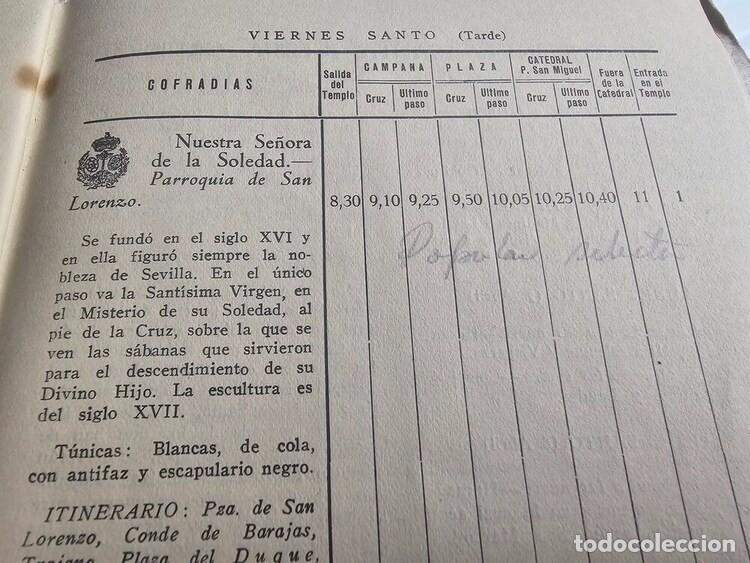 VIERNES SANTO (Tarde)
COFRADIAS
Salida del Templo
CAMPANA
Cruz
Ultimo paso
PLAZA
Cruz
Ultimo paso
CATEDRAL
P. San Miguel
Cruz
Ultimo paso
Fuera de la Catedral
Entrada en el Templo
Nuestra Señora
de la Soledad.—
Parroquia de San
Lorenzo.
8,30 9,10 9,25 9,50 10,05 10,25 10,40 11 1
Popular selecta
Se fundó en el siglo XVI y
en ella figuró siempre la no-
bleza de Sevilla. En el único
paso va la Santísima Virgen, en
el Misterio de su Soledad, al
pie de la Cruz, sobre la que se
ven las sábanas que sirvieron
para el descendimiento de su
Divino Hijo. La escultura es
del siglo XVII.
Túnicas: Blancas, de cola,
con antifaz y escapulario negro.
ITINERARIO: Pza. de San
Lorenzo, Conde de Barajas,
Trajano, Plaza del Duque,
todocoleccion